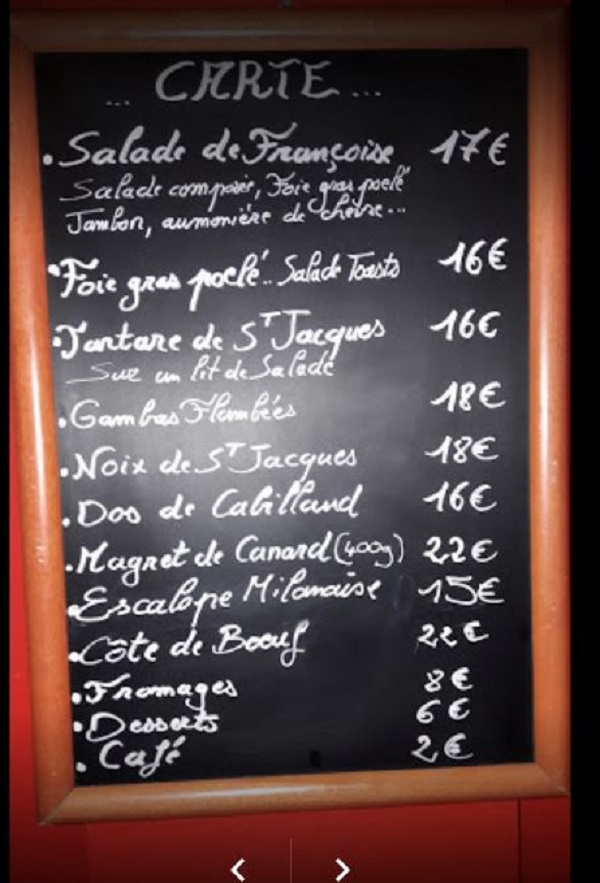 ... CARTE ...
• Salade de Françoise 17€
Salade composée, Foie gras poelé
Jambon, aumonière de chèvre...
• Foie gras poelé.. Salade Toasts 16€
• Tartare de S^T Jacques 16€
Sur un lit de Salade
• Gambas Flambées 18€
• Noix de S^T Jacques 18€
• Dos de Cabillaud 16€
• Magret de Canard (400g) 22€
• Escalope Milanaise 15€
• Côte de Boeuf 22€
• Fromages 8€
• Desserts 6€
• Café 2€